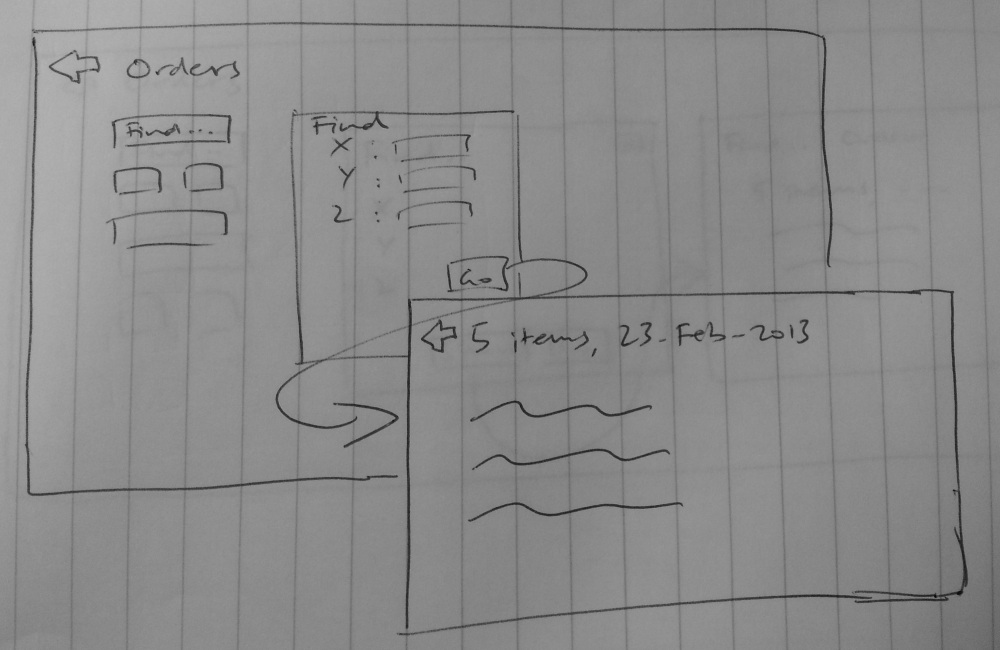 Orders
Find...
Find
X :
Y :
Z :
Go
5 items, 23-Feb-2013